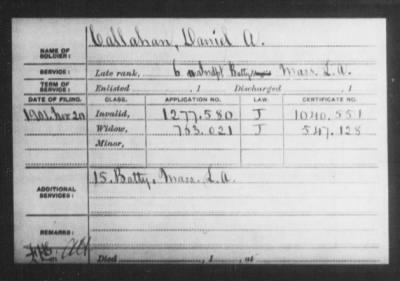 NAME OF SOLDIER: Callahan, Daniel A.
SERVICE: Late rank, 6 Batty Mass. L.A.
TERM OF SERVICE: Enlisted , 1 Discharged , 1
DATE OF FILING. CLASS. APPLICATION NO. LAW. CERTIFICATE NO.
1901, Nov 20 Invalid, 1277.580 J 1040.551
Widow, 763.021 J 547.128
Minor,
ADDITIONAL SERVICES: 15. Batty, Mass. L.A.
REMARKS:
Died , 1 , at